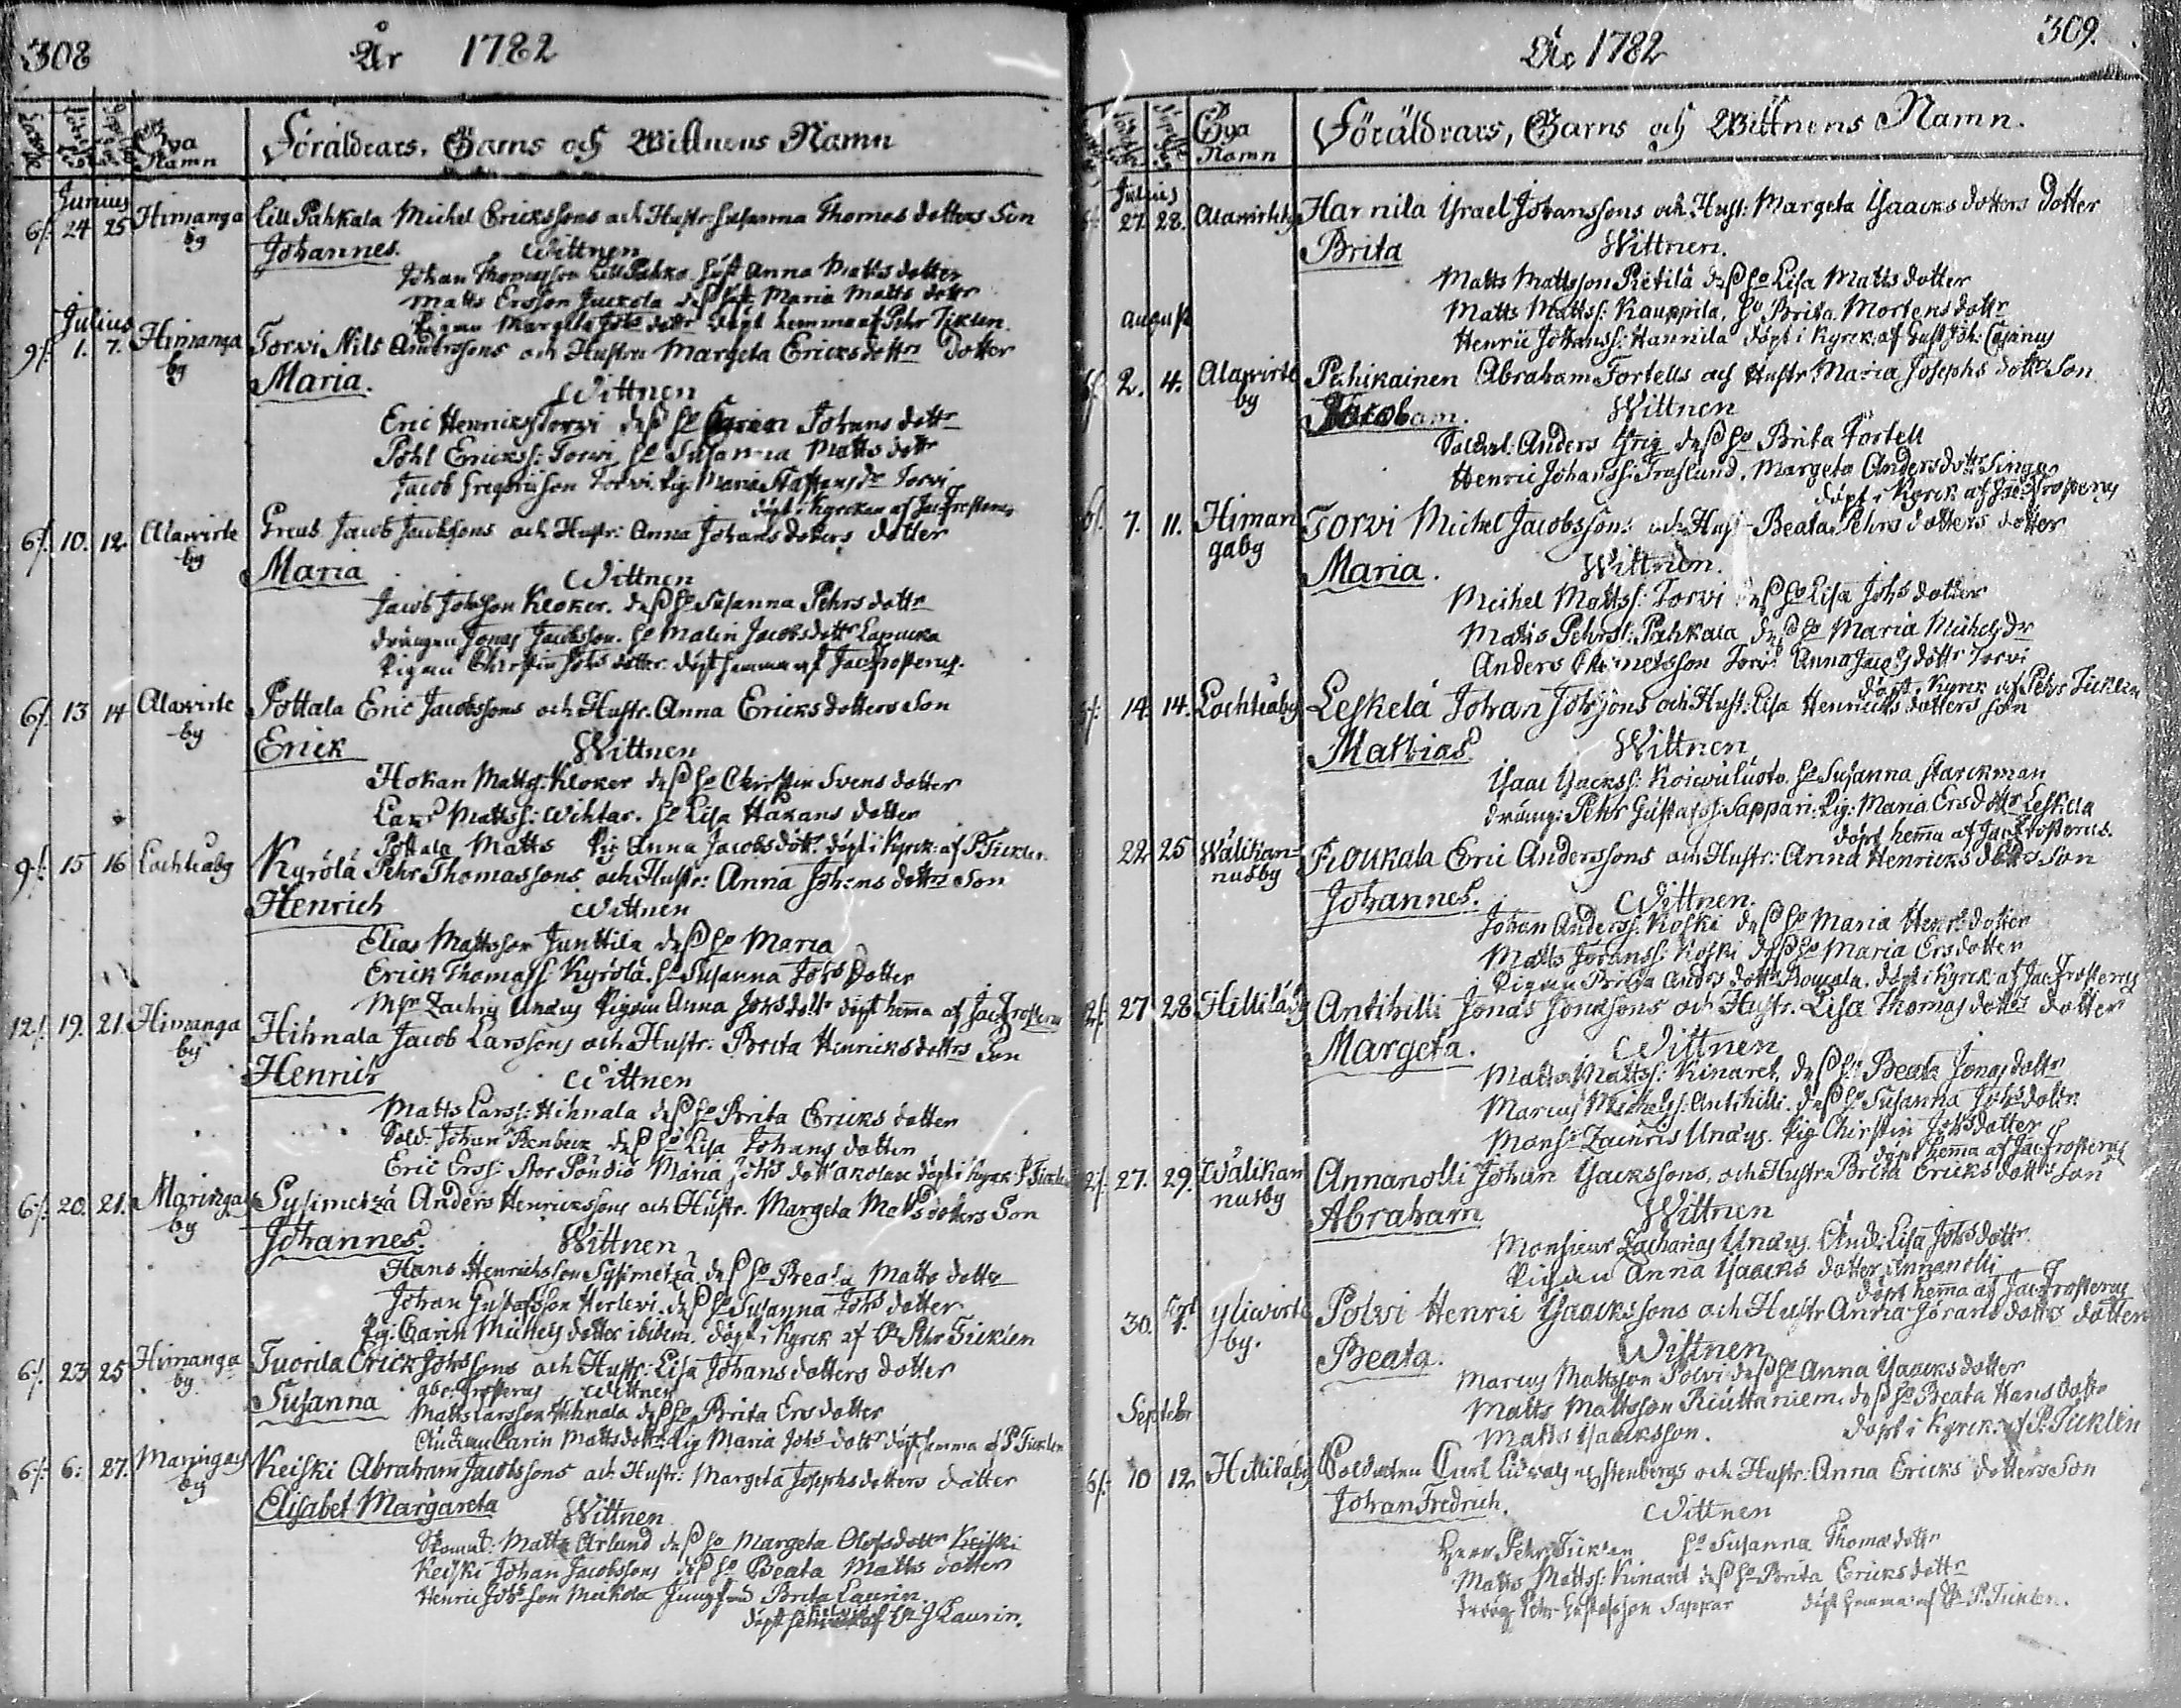 308
År 1782
Bya Namn
Föräldrars, Barns och Wittnens Namn
Junius
6/. 24 25 Himanga by Lill Pahkala Michel Erickssons och Hustr: Susanna Thomas dotters Son
Johannes. Wittnen
Johan Thomasson Lill Pahka. Hust Anna Matts dotter
Matts Ersson Juckola dess Hust. Maria Matts dotter
Pigan Margeta Johs dottr döpt hemma af Pehr Ticklen.
Julius
9/. 1. 7. Himanga by Torvi Nils Anderssons och Hustru Margeta Ericksdottrs Dotter
Maria.
Wittnen
Eric Henrics Torvi dess Ho Johans dottr
Påhl Ericss: Torvi Ho Susanna Matts dottr
Jacob Gregoriisson Torvi. Pig: Maria Staffans dr Torvi
döpt i Kyrckan af Jac: Frosterus
6/. 10. 12. Alawirte by Jacob Jacobssons och Hustr: Anna Johans dotters dotter
Maria
Wittnen
Jacob Johsson Kloker. dess Ho Susanna Pehrs dottr
drängen Jonas Jacobsson. Ho Malin Jacobs dottr
Pigan Chirstin Johs dotter. döpt hemma af Jac: Frosterus.
6/. 13 14 Alawirte by Pottala Eric Jacobssons och Hustr. Anna Ericks dotters Son
Erick Wittnen
Hokan Mattss: Kloker dess Ho Chirstin Svens dotter
Lars Mattss: Wihtar. Ho Lisa Hakans dotter
Pottala Matts Pig Anna Jacobs dottr. döpt i Kyrck: af P. Ticklen.
9/. 15 16 Lochteåby Kyrölä Pehr Thomassons och Hustr: Anna Johans dottrs Son
Henrich Wittnen
Elias Mattsson Junttila dess Ho Maria
Erick Thomass: Kyrölä. Ho Susanna Johs Dotter
Msr Zachris Unæus Pigan Anna Johs dottr döpt hemma af Jac Frosterus
12/. 19. 21. Himanga by Hihnala Jacob Larssons och Hustr: Brita Henricks dottrs Son
Henrich Wittnen
Matts Larss: Hihnala dess Ho Brita Ericks dotter
Sold: Johan Renbeck dess Ho Lisa Johans dotter
Eric Erss: Stor Pöndiö Maria Johs dott döpt i Kyrck: P Ticklen
6/. 20. 21. Maringais by Sysimetzä Anders Henrickssons och Hustr. Margeta Matts dotters Son
Johannes. Wittnen
Hans Henrichsson Sysimetzä dess Ho Beata Matts dottr
Johan Gustafsson Herlevi. dess Ho Susanna Johs dotter
Pig: Carin Michels dotter ibidem. döpt i Kyrck af Pehr Ticklen
6/. 23 25 Himanga by Tuorila Erick Johssons och Hustr: Lisa Johans dotters dotter
Susanna Frosterus Wittnen
Matts Larsson Hihnala dess Ho Brita Ers dotter
Änckan Carin Matts dottr Pig Maria Johs dottr döpt hemma af P Ticklen
6/. 6: 27. Maringais by Keiski Abraham Jacobssons och Hustr: Margeta Josephs dotters dotter
Elisabet Margareta Wittnen
Matts Arlund dess Ho Margeta Olofs dottr Keiski
Keiski Johan Jacobssons dess Ho Beata Matts dotter
Henric Johsson Muckola Jungfrun Brita Laurin
döpt af J Laurin.
309.
År 1782
Bya Namn
Föräldrars, Barns och Wittnens Namn.
Julius
6/. 27. 28. Alawirteby Harnila Israel Johanssons och Hust: Margeta Isaacks dotters Dotter
Brita Wittnen.
Matts Mattsson Pietilä dess Ho Lisa Matts dotter
Matts Mattss: Kauppila. Ho Brita Mortens dottr
Henric Johanss: Hannila döpt i Kyrck: af Gust Joh: Cajanus
August
6/. 2. 4. Alawirte by Pahikainen Abraham Fortells och Hustr: Maria Josephs dottrs Son
Wittnen
Soldat: Anders Krig dess Ho Brita Fortell
Henric Johanss: Fraslund. Margeta Anders dottr
döpt i Kyrck af Jac Frosterus
6/. 7. 11. Himangaby Torvi Michel Jacobsson: och Hust Beata Pehrs dotters dotter
Maria. Wittnen.
Michel Mattss: Torvi dess Ho Lisa Johs dotter
Matts Pehrss: Pahkala dess Ho Maria Michels dr
Anders Torvi Anna Jacobs dottr Torvi
döpt i Kyrck af Pehr Ticklen
14. 14. Lochteåby Leskelä Johan Johssons och Hust: Lisa Henricks dotters son
Mathias. Wittnen
Isaac Isackss: Koiwuluoto. Ho Susanna Starckman
dräng: Pehr Gustafss: Sappari: Pig: Maria Ers dottr Leskelä
döpt hemma af Jac Frosterus.
22 25 Wälikannusby Roukala Eric Anderssons och Hustr: Anna Henricks dottrs Son
Johannes. Wittnen.
Johan Anderss: Koski dess Ho Maria Henrs dotter
Matts Johanss: Koski dess Ho Maria Ers dotter
Pigan Brita Anders dottr Roucala. döpt i Kyrck: af Jac: Frosterus
27 28 Hillilåby Antihilli Jonas Jonssons och Hustr. Lisa Thomas dottrs dotter
Margeta. Wittnen
Matts Mattss: Kinaret. dess Ho Beata Jonas dottr
Marcus Michelss: Antihilli. dess Ho Susanna Johs dottr
Monsr Zachris Unæus. Pig Chirstin Johs dotter
döpt hemma af Jac Frosterus
27. 29. Wälikannusby Annanolli Johan Isackssons, och Hustru Brita Ericks dottrs Son
Abraham Wittnen
Monsieur Zacharias Unæus. Lisa Johs dottr
Pigan Anna Isaacks dotter Annanolli
döpt hemma af Jac: Frosterus
30. Sept 1. Yliwirte by. Polvi Henric Isaackssons och Hustr Anna Jörans dottrs dotter
Beata. Wittnen
Marcus Mattsson Polvi dess Ho Anna Isaacks dotter
Matts Mattsson Riuttaniem. dess Ho Beata Hans dottr
Matts Isaacksson. döpt i Kyrck: af P: Ticklen
Septebr
6/. 10 12 Hillilåby Soldaten Carl Stenbergs och Hustr: Anna Ericks dotters Son
Johan Fredrich. Wittnen
Herr Pehr Ticklen Ho Susanna Thomæ dottr
Matts Mattss: Kinaret dess Ho Brita Ericks dottr
dräng Pehr Gustafsson Sappar döpt hemma af P. Ticklen.